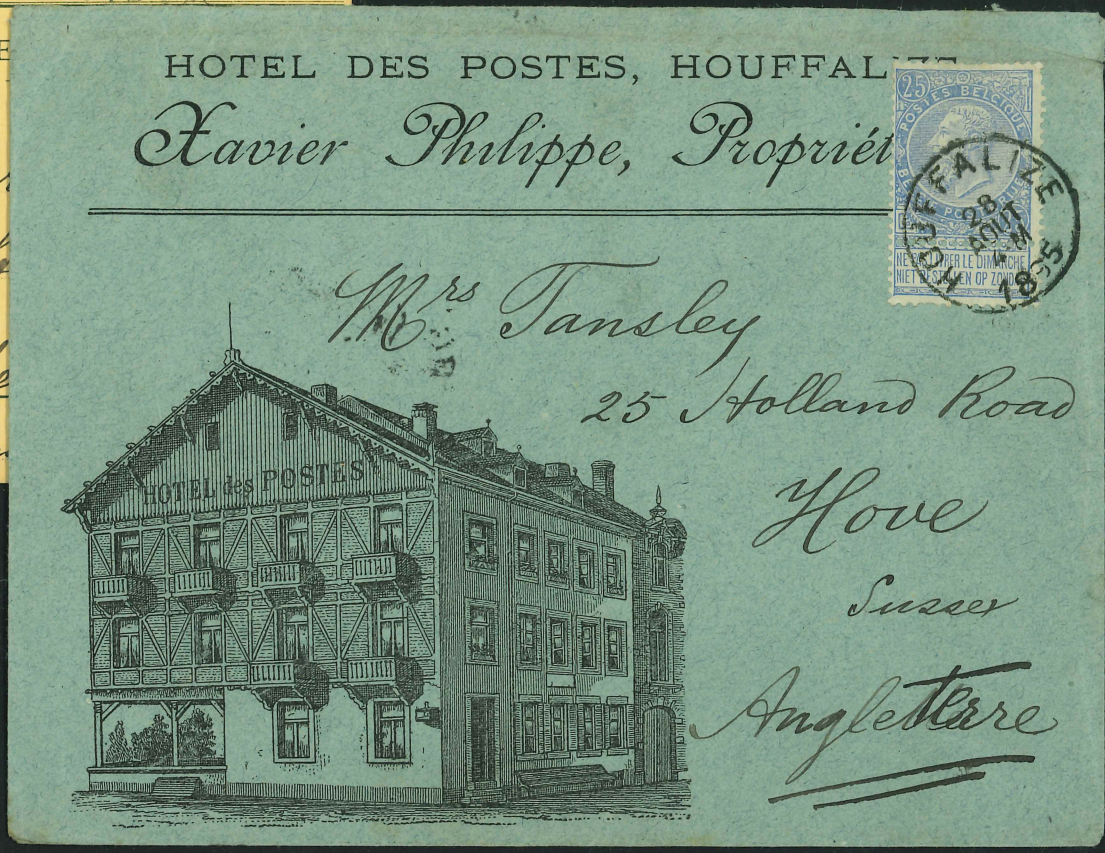 HOTEL DES POSTES, HOUFFALIZE
Xavier Philippe, Propriét
25
POSTES BELGIQUE
NE LIVRER LE DIMANCHE
NIET BESTELLEN OP ZONDAG
HOUFFALIZE
28
AOUT
4 M
1895
Mrs Tansley
25 Holland Road
Hove
Sussex
Angleterre
HOTEL des POSTES